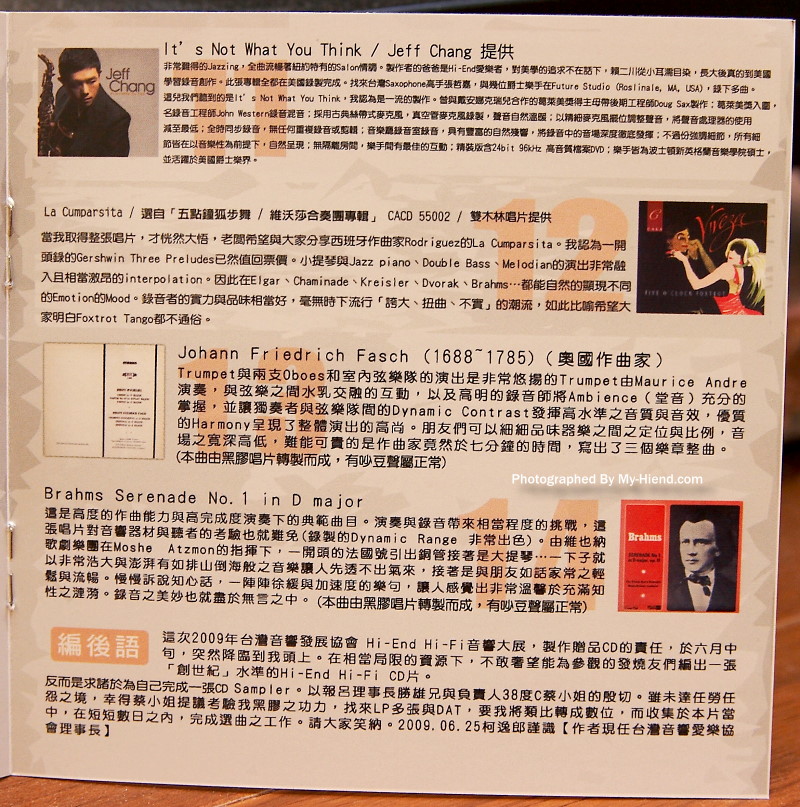 It's Not What You Think / Jeff Chang 提供
Jeff
Chang
非常難得的Jazzing，全曲流暢著紐約特有的Salon情調。製作者的爸爸是Hi-End愛樂者，對美學的追求不在話下，賴二川從小耳濡目染，長大後真的到美國
學習錄音創作。此張專輯全都在美國錄製完成。找來台灣Saxophone高手張哲嘉，與幾位爵士樂手在Future Studio (Roslinale, MA, USA)，錄下多曲。
這兒我們聽到的是It's Not What You Think，我認為是一流的製作。曾與戴安娜克瑞兒合作的葛萊美獎得主母帶後期工程師Doug Sax製作；葛萊美獎入圍，
名錄音工程師John Western錄音混音；採用古典絲帶式麥克風，真空管麥克風錄製，聲音自然溫暖；以精細麥克風擺位調整聲音，將聲音處理器的使用
減至最低；全時同步錄音，無任何重複錄音或剪輯；音樂廳錄音室錄音，具有豐富的自然殘響，將錄音中的音場深度徹底發揮；不過份強調細節，所有細
節皆在以音樂性為前提下，自然呈現；無隔離房間，樂手間有最佳的互動；精裝版含24bit 96kHz 高音質檔案DVD；樂手皆為波士頓新英格蘭音樂學院碩士，
並活躍於美國爵士樂界。
12
La Cumparsita / 選自「五點鐘狐步舞 / 維沃莎合奏團專輯」 CACD 55002 / 雙木林唱片提供
當我取得整張唱片，才恍然大悟，老闆希望與大家分享西班牙作曲家Rodriguez的La Cumparsita。我認為一開
頭錄的Gershwin Three Preludes已然值回票價。小提琴與Jazz piano、Double Bass、Melodian的演出非常融
入且相當激昂的interpolation。因此在Elgar、Chaminade、Kreisler、Dvorak、Brahms…都能自然的顯現不同
的Emotion的Mood。錄音者的實力與品味相當好，毫無時下流行「誇大、扭曲、不實」的潮流，如此比喻希望大
家明白Foxtrot Tango都不通俗。
Viveza
FIVE O'CLOCK FOXTROT
Johann Friedrich Fasch (1688~1785) (奧國作曲家)
Trumpet與兩支Oboes和室內弦樂隊的演出是非常悠揚的Trumpet由Maurice Andre
演奏，與弦樂之間水乳交融的互動，以及高明的錄音師將Ambience (堂音) 充分的
掌握，並讓獨奏者與弦樂隊間的Dynamic Contrast發揮高水準之音質與音效，優質
的Harmony呈現了整體演出的高尚。朋友們可以細細品味器樂之間之定位與比例，音
場之寬深高低，難能可貴的是作曲家竟然於七分鐘的時間，寫出了三個樂章整曲。
(本曲由黑膠唱片轉製而成，有吵豆聲屬正常)
Photographed By My-Hiend.com
14
Brahms Serenade No.1 in D major
這是高度的作曲能力與高完成度演奏下的典範曲目。演奏與錄音帶來相當程度的挑戰，這
張唱片對音響器材與聽者的考驗也就難免(錄製的Dynamic Range 非常出色)。由維也納
歌劇樂團在Moshe Atzmon的指揮下，一開頭的法國號引出銅管接著是大提琴…一下子就
以非常浩大與澎湃有如排山倒海般之音樂讓人先透不出氣來，接著是與朋友如話家常之輕
鬆與流暢。慢慢訴說知心話，一陣陣徐緩與加速度的樂句，讓人感覺出非常溫馨於充滿知
性之漣漪。錄音之美妙也就盡於無言之中。(本曲由黑膠唱片轉製而成，有吵豆聲屬正常)
Brahms
編後語
這次2009年台灣音響發展協會 Hi-End Hi-Fi音響大展，製作贈品CD的責任，於六月中
旬，突然降臨到我頭上。在相當局限的資源下，不敢奢望能為參觀的發燒友們編出一張
「創世紀」水準的Hi-End Hi-Fi CD片。
反而是求諸於為自己完成一張CD Sampler。以報呂理事長勝雄兄與負責人38度C蔡小姐的殷切。雖未達任勞任
怨之境，幸得蔡小姐提議考驗我黑膠之功力，找來LP多張與DAT，要我將類比轉成數位，而收集於本片當
中，在短短數日之內，完成選曲之工作。請大家笑納。2009.06.25柯逸郎謹識【作者現任台灣音響愛樂協
會理事長】